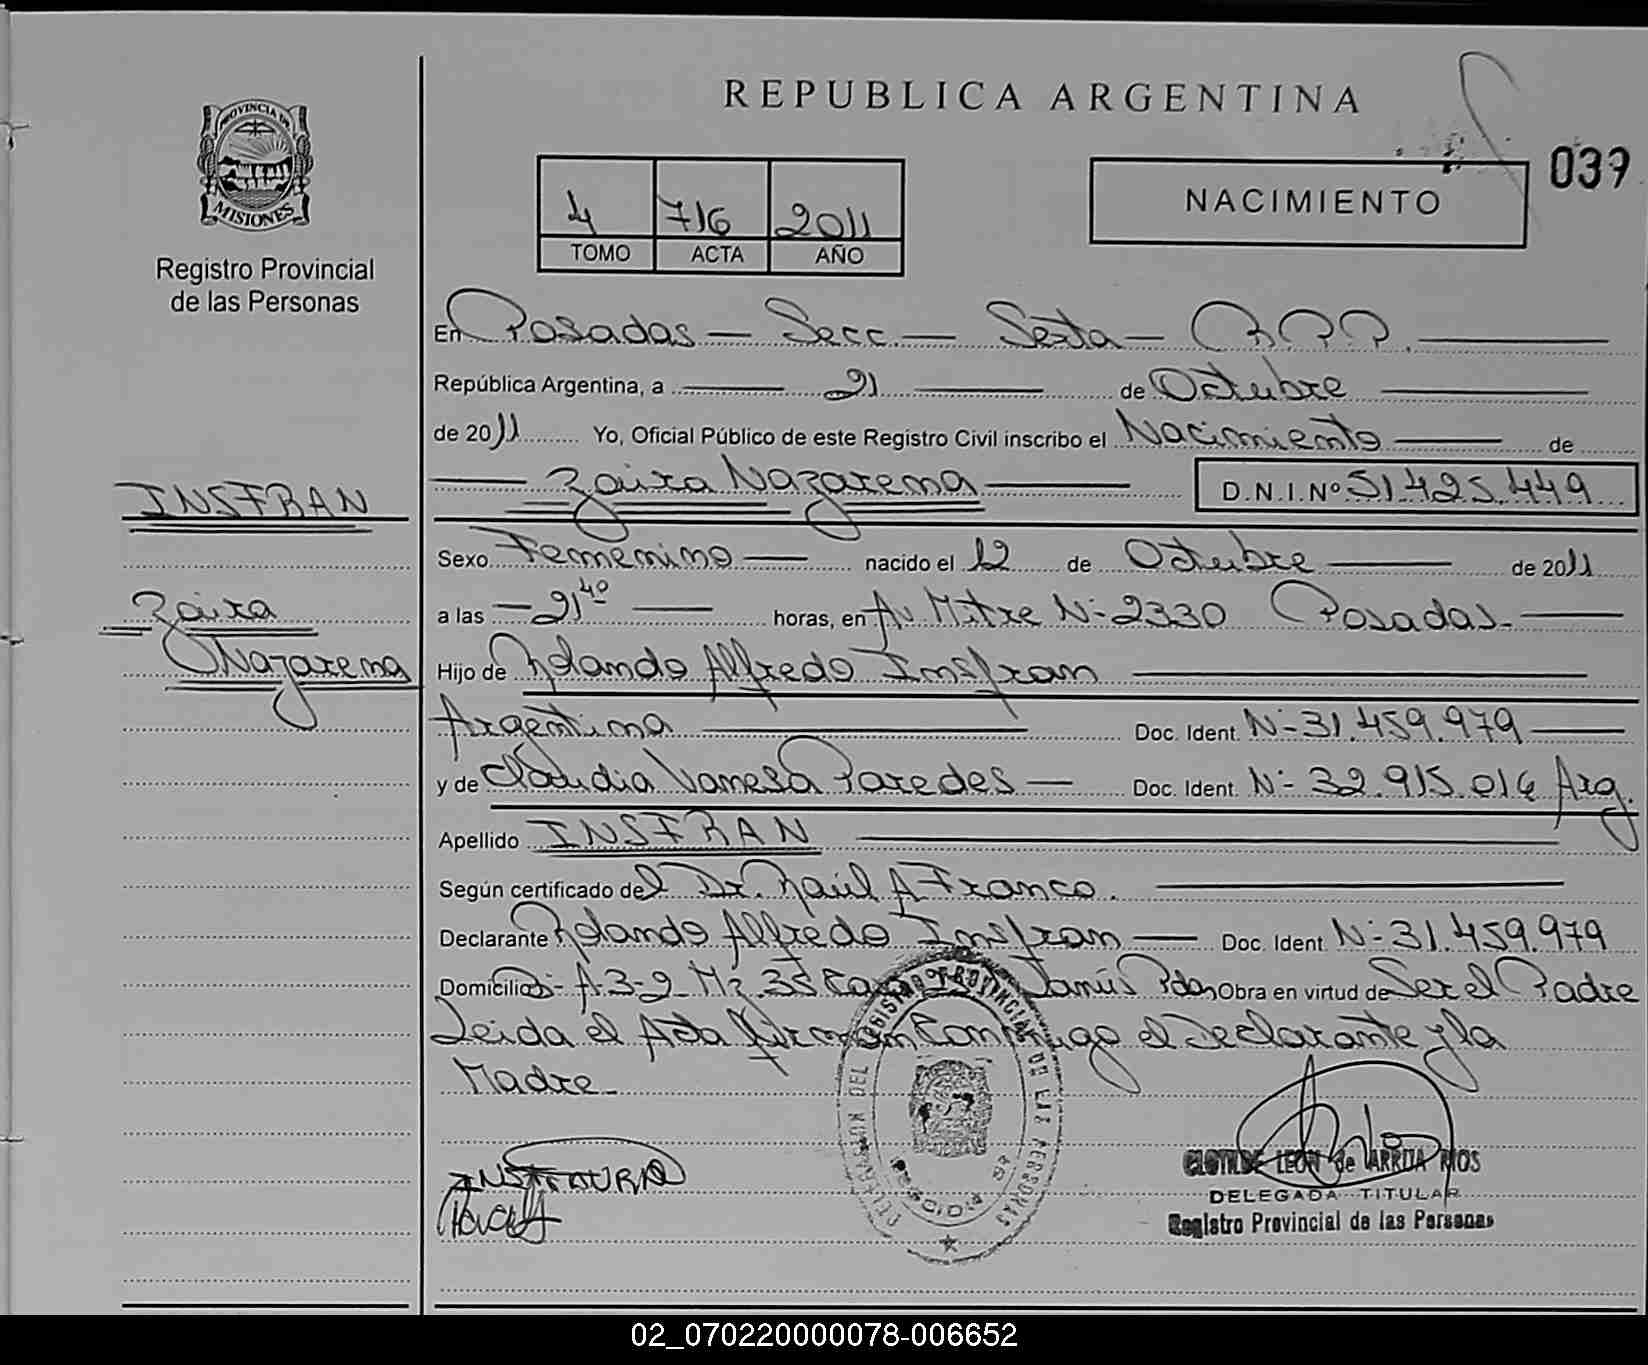 REPUBLICA ARGENTINA
039
PROVINCIA DE
MISIONES
Registro Provincial
de las Personas
NACIMIENTO
4 716 2011
TOMO ACTA AÑO
En Posadas - Secc. - Sexta - R.P.P.
República Argentina, a 21 de Octubre
de 2011 Yo, Oficial Público de este Registro Civil inscribo el Nacimiento de
Zaira Nazarena D.N.I.Nº 51.425.449
INSFRAN
Sexo Femenino nacido el 12 de Octubre de 2011
Zaira
a las 21 40 horas, en Av. Mitre Nº 2330 Posadas
Nazarena
Hijo de Rolando Alfredo Insfran
Argentina Doc. Ident. Nº 31.459.979
y de Claudia Vanesa Paredes Doc. Ident. Nº 32.915.014 Arg.
Apellido INSFRAN
Según certificado del Dr. Raúl A Franco.
Declarante Rolando Alfredo Insfran Doc. Ident. Nº 31.459.979
Domicilio A.3-2 Mz. 35 Obra en virtud de Ser el Padre
Leida el Acta firman Conmigo el Declarante y la
Madre
CLOTILDE LEON de ARRUA RIOS
DELEGADA TITULAR
Registro Provincial de las Personas
02_070220000078-006652